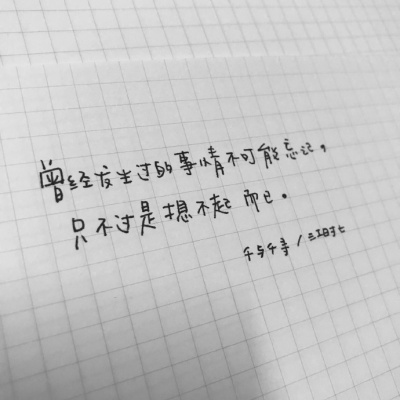 曾经发生过的事情不可能忘记，
只不过是想不起而已。
千与千寻 /